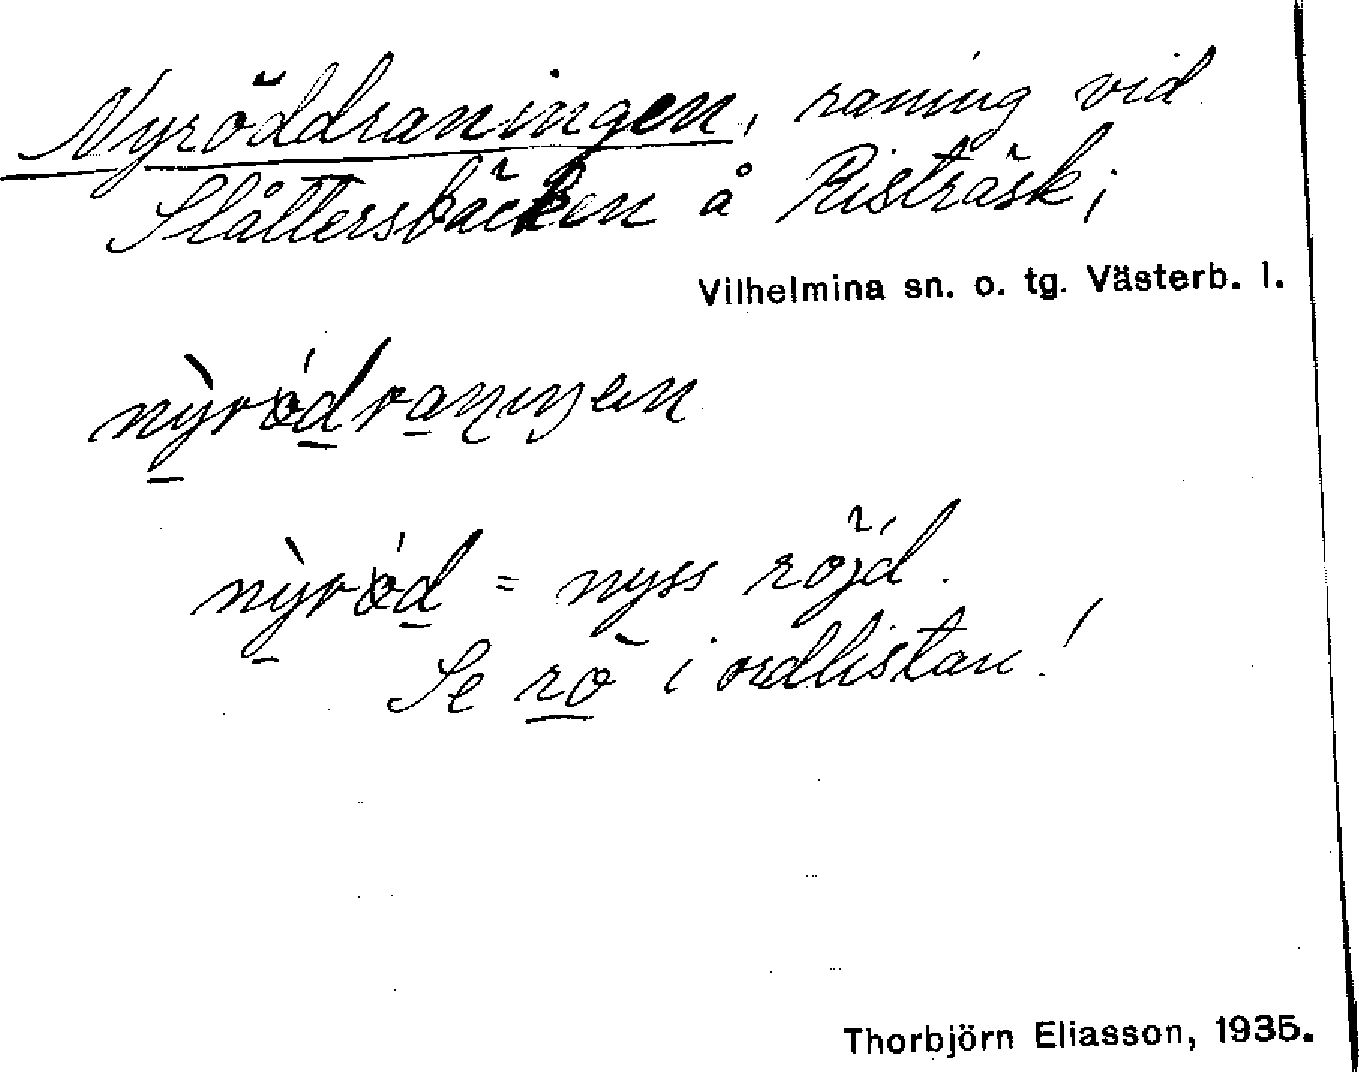 Nyröddraningen, raning vid
Slåttersbäcken å Risträsk;
Vilhelmina sn. o. tg. Västerb. l.
nyröd = nyss röjd.
Se rö i ordlistan!
Thorbjörn Eliasson, 1935.